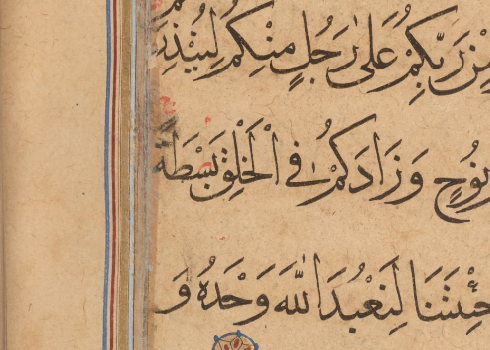 مِنْ رَبِّكُمْ عَلَى رَجُلٍ مِنْكُمْ لِيُنْذِرَ
نُوحٍ وَزَادَكُمْ فِي الْخَلْقِ بَسْطَةً
جِئْتَنَا لِنَعْبُدَ اللَّهَ وَحْدَهُ وَ